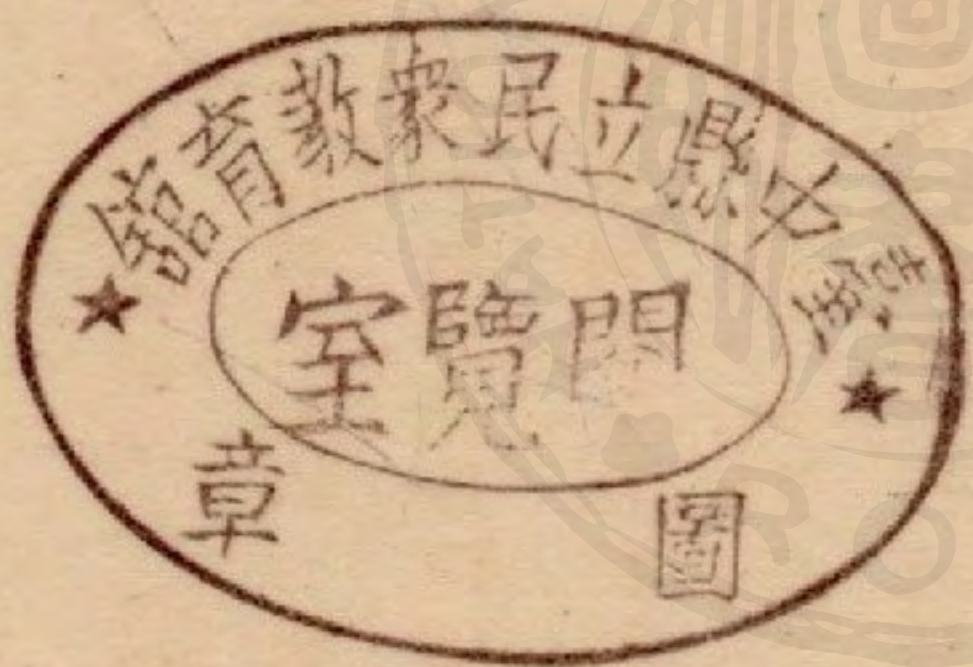 臺中縣立民衆教育館
閱覽室
圖章